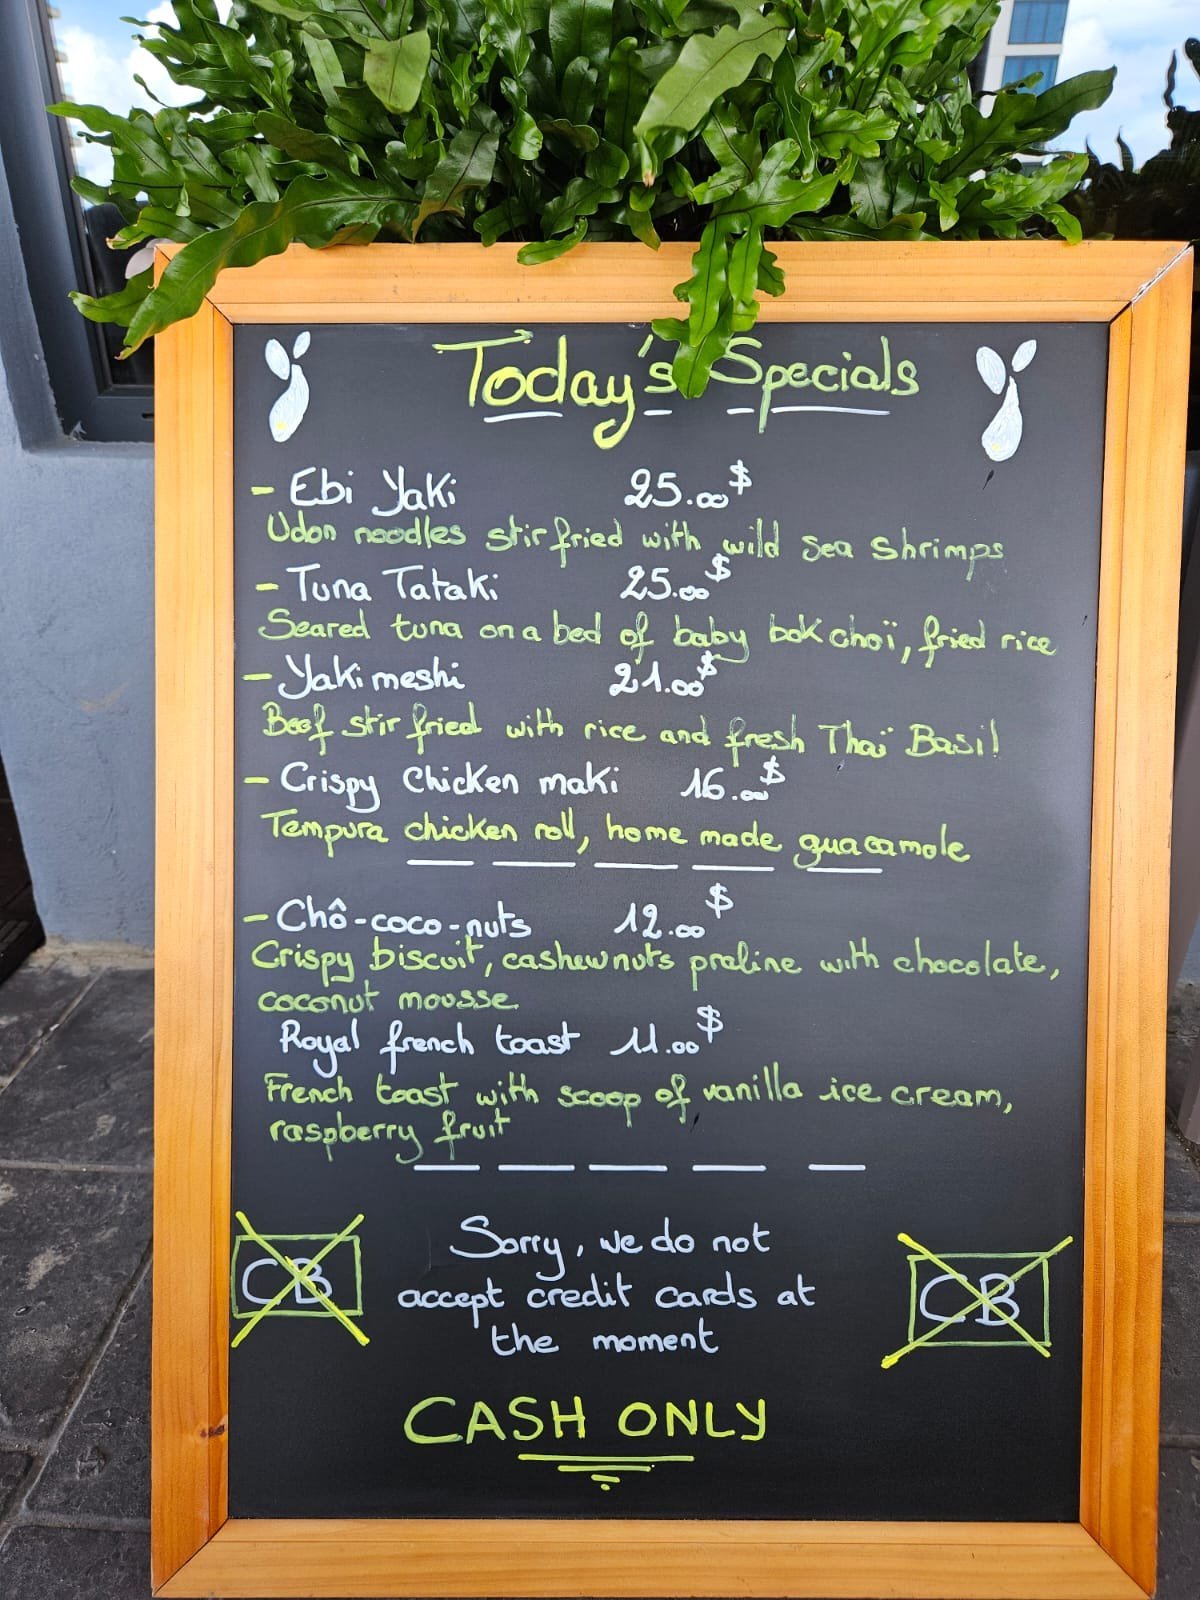 Today's Specials
- Ebi Yaki 25.00$
Udon noodles stir fried with wild sea shrimps
- Tuna Tataki 25.00$
Seared tuna on a bed of baby bok choï, fried rice
- Yaki meshi 21.00$
Beef stir fried with rice and fresh Thaï Basil
- Crispy chicken maki 16.00$
Tempura chicken roll, home made guacamole
- Chô-coco-nuts 12.00$
Crispy biscuit, cashewnuts praline with chocolate,
coconut mousse
Royal french toast 11.00$
French toast with scoop of vanilla ice cream,
raspberry fruit
CB
Sorry, we do not
accept credit cards at
the moment
CB
CASH ONLY